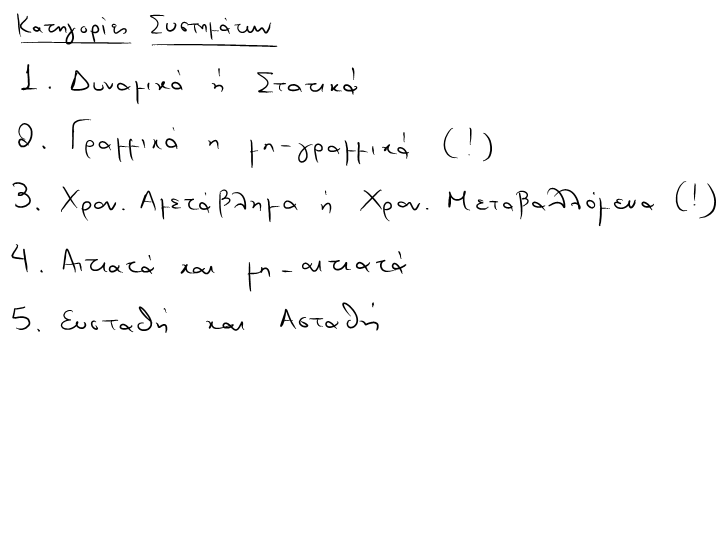 Κατηγορίες Συστημάτων
1. Δυναμικά ή Στατικά
2. Γραμμικά η μη-γραμμικά (!)
3. Χρον. Αμετάβλημα ή Χρον. Μεταβαλλόμενα (!)
4. Αιτιατά και μη-αιτιατά
5. Ευσταθή και Ασταθή